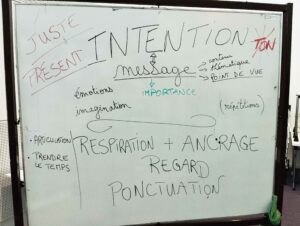 JUSTE
PRÉSENT
INTENTION
TON
message
contenu
thématique
POINT DE VUE
IMPORTANCE
émotions
imagination
(répétitions)
• ARTICULATION
• PRENDRE
LE TEMPS
RESPIRATION + ANCRAGE
REGARD
PONCTUATION